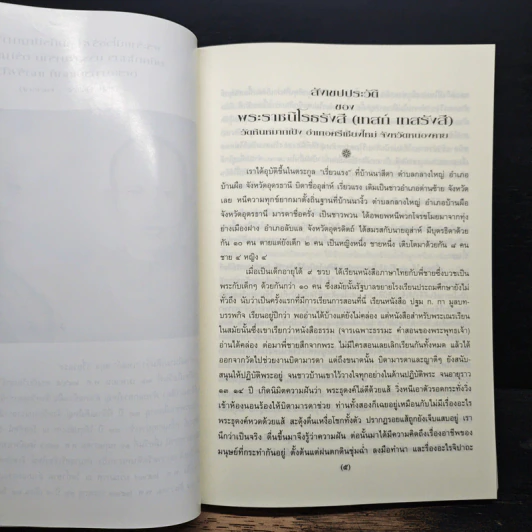 สังเขปประวัติ
ของ
พระราชนิโรธรังสี (เทสก์ เทสรังสี)
วัดหินหมากเป้ง อำเภอศรีเชียงใหม่ จังหวัดหนองคาย
เราได้อุบัติขึ้นในตระกูล "เรี่ยวแรง" ที่บ้านนาสีดา ตำบลกลางใหญ่ อำเภอ
บ้านผือ จังหวัดอุดรธานี บิดาชื่ออุส่าห์ เรี่ยวแรง เดิมเป็นชาวอำเภอด่านซ้าย จังหวัด
เลย หนีความทุกข์ยากมาตั้งถิ่นฐานที่บ้านนางิ้ว ตำบลกลางใหญ่ อำเภอบ้านผือ
จังหวัดอุดรธานี มารดาชื่อครั่ง เป็นชาวพวน ได้อพยพหนีพวกโจรขโมยมาจากทุ่ง
ย่างเมืองฝาง อำเภอลับแล จังหวัดอุตรดิตถ์ ได้สมรสกับนายอุส่าห์ มีบุตรธิดาด้วย
กัน ๑๐ คน ตายแต่ยังเด็ก ๒ คน เป็นหญิงหนึ่ง ชายหนึ่ง เติบโตมาด้วยกัน ๘ คน
ชาย ๔ หญิง ๔
เมื่อเป็นเด็กอายุได้ ๙ ขวบ ได้เรียนหนังสือภาษาไทยกับพี่ชายซึ่งบวชเป็น
พระกับเด็กๆ ด้วยกันกว่า ๑๐ คน ซึ่งสมัยนั้นรัฐบาลขยายโรงเรียนประถมศึกษายังไม่
ทั่วถึง นับว่าเป็นครั้งแรกที่มีการเรียนการสอนที่นี่ เรียนหนังสือ ปฐม ก. กา มูลบท-
บรรพกิจ เรียนอยู่ปีกว่า พออ่านได้บ้างแต่ยังไม่คล่อง แต่หนังสือสำหรับพระเณรเรียน
ในสมัยนั้นซึ่งเขาเรียกว่าหนังสือธรรม (จารเฉพาะธรรมะ คำสอนของพระพุทธเจ้า)
อ่านได้คล่อง ต่อมาพี่ชายสึกจากพระ ไม่มีใครสอนเลยเลิกเรียนกันทั้งหมด แล้วได้
ออกจากวัดไปช่วยงานบิดามารดา แต่ถึงขนาดนั้น บิดามารดาและญาติๆ ยังสนับ-
สนุนให้ปฏิบัติพระอยู่ จนชาวบ้านเขาไว้วางใจทุกอย่างในด้านปฏิบัติพระ จนอายุราว
๑๓ ๑๔ ปี เกิดนิมิตความฝันว่า พระธุดงค์ไล่ตีด้วยแส้ วิ่งหนีเอาตัวรอดกระทั่งวิ่ง
เข้าห้องนอนร้องให้บิดามารดาช่วย ท่านทั้งสองก็เฉยอยู่เหมือนกับไม่มีเรื่องอะไร
พระธุดงค์หวดด้วยแส้ สะดุ้งตื่นเหงื่อโชกทั้งตัว ปรากฏรอยแส้ถูกยังเจ็บแสบอยู่ เรา
นึกว่าเป็นจริง ตื่นขึ้นมาจึงรู้ว่าความฝัน ต่อนั้นมาได้มีความคิดถึงเรื่องอาชีพของ
มนุษย์ที่กระทำกันอยู่ ตั้งต้นแต่ฝนตกดินชุ่มฉ่ำ ลงมือทำนา และเรื่องอะไรจิปาถะ
(๕)